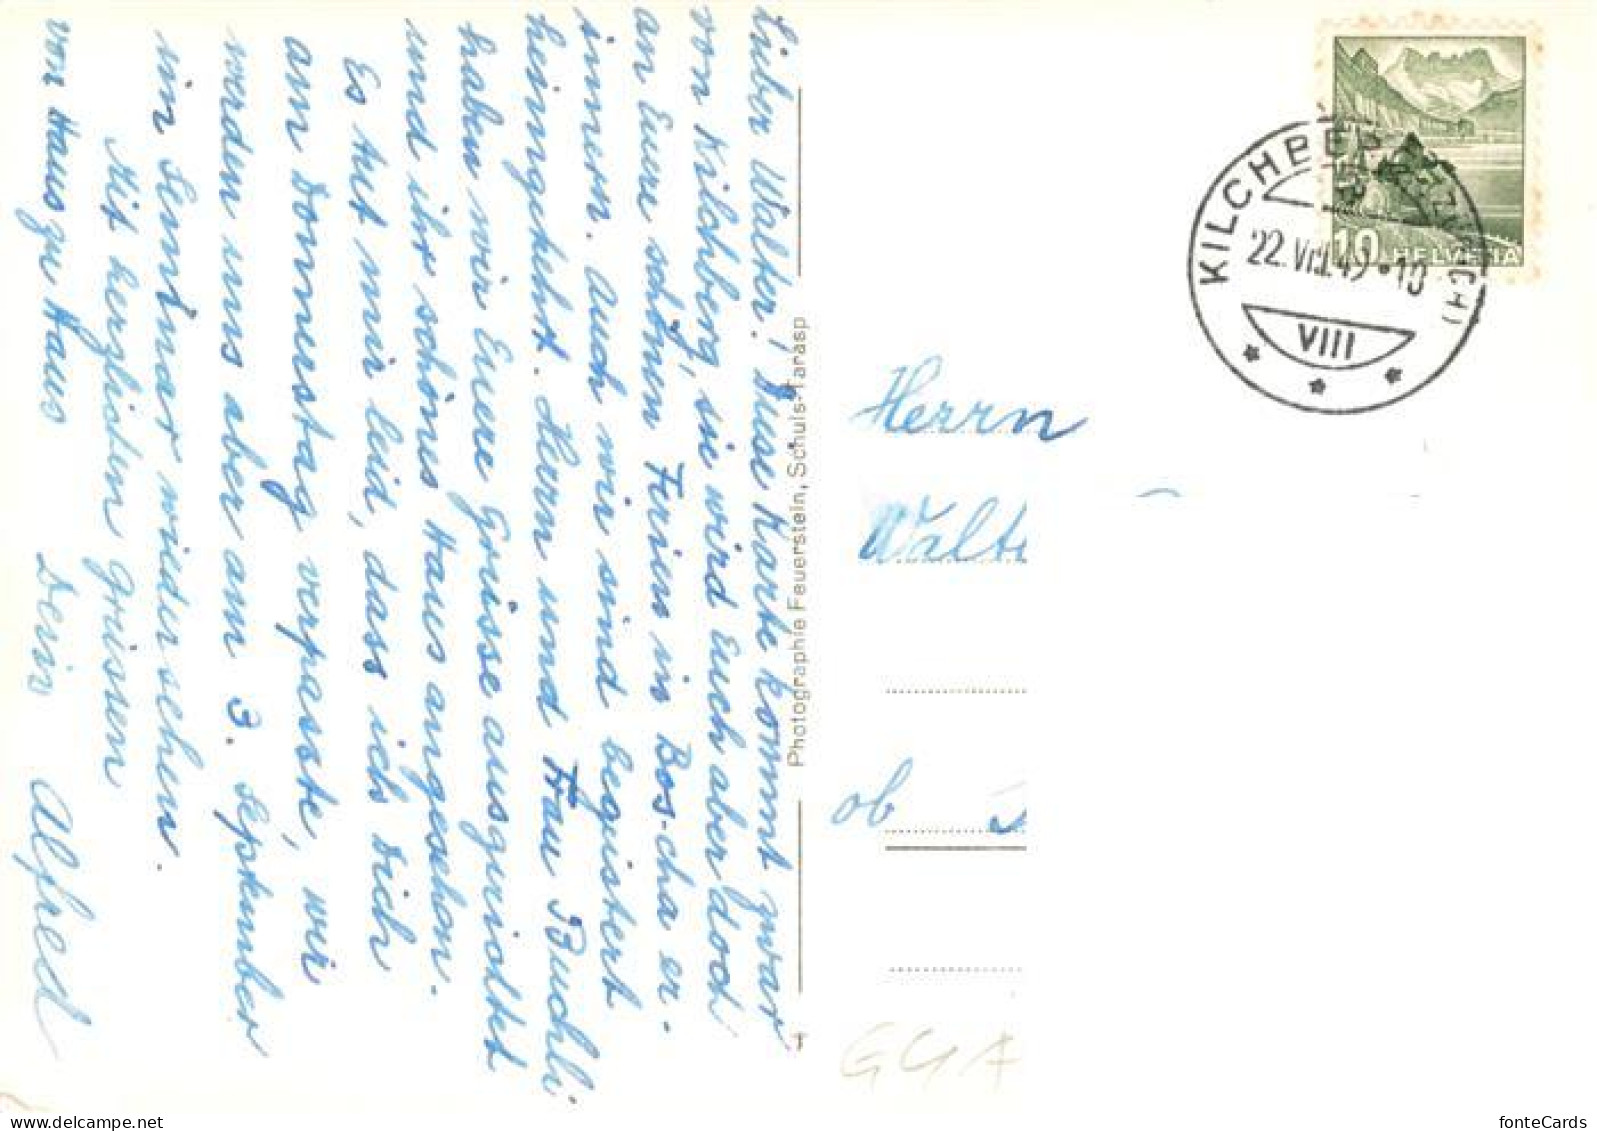 Lieber Walter! Diese Karte kommt zwar
von Kilchberg, sie wird Euch aber doch
an Eure schönen Ferien in Bos-cha er-
innern. Auch wir sind begeistert
heimgekehrt. Herrn und Frau Buchli
haben wir Euere Grüsse ausgerichtet
und ihr schönes Haus angesehen.
Es tut mir leid, dass ich Dich
am Donnerstag verpasste, wir
werden uns aber am 3. September
im Seminar wieder sehen.
Mit herzlichen Grüssen
von Haus zu Haus Dein Alfred
Photographie Feuerstein, Schuls-Tarasp
KILCHBERG (ZÜRICH)
22.VIII.49•18
VIII
10 HELVETIA
Herrn
Walte
ob
GGA
fonteCards